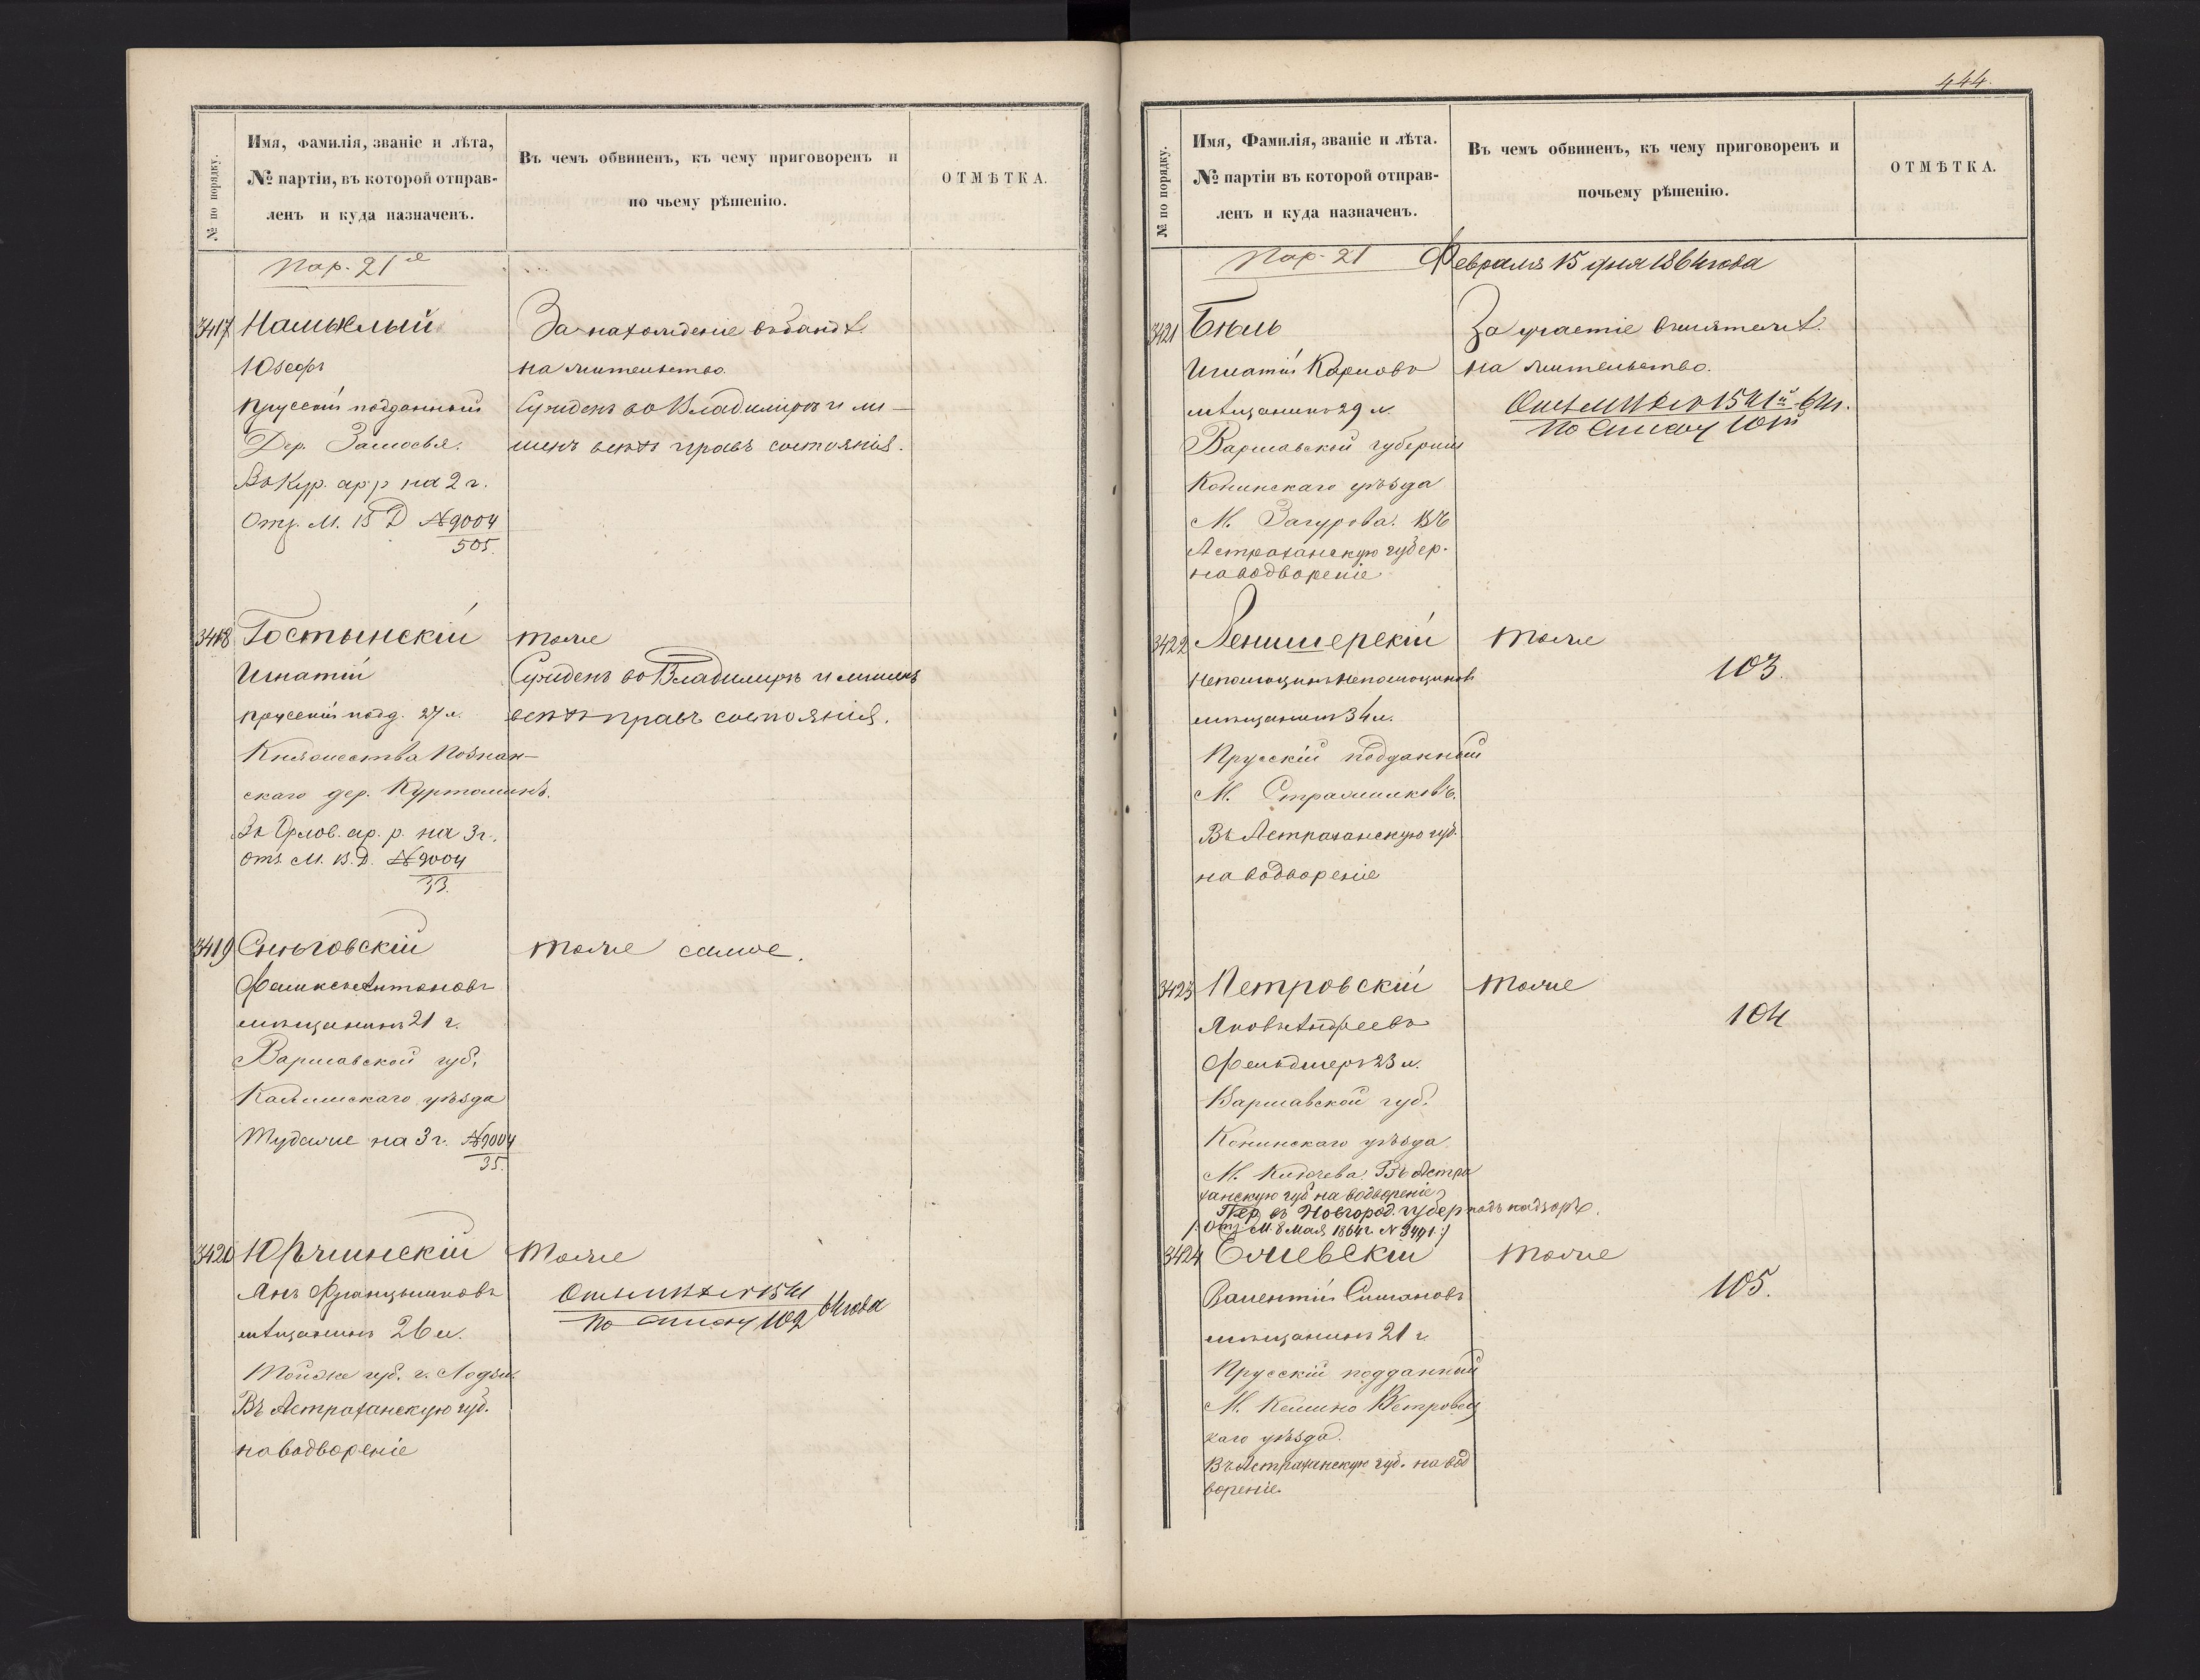 № по порядку.
Имя, фамилія, званіе и лѣта,
№ партіи, въ которой отправ-
ленъ и куда назначенъ.
Въ чемъ обвиненъ, къ чему приговоренъ и
по чьему рѣшенію.
ОТМѢТКА.
Пар. 21й
3417
Юзефъ
За нахожденіе въ бандѣ
на жительство.
прусскій подданный
Сужденъ во Владимірѣ и ли-
Дер. Замосья.
шенъ всѣхъ правъ состоянія.
Въ Кур. ар. р. на 2 г.
Отз. М. В. Д. №9004
505.
3418 Гостынскій
тоже
Игнатій
Сужденъ во Владимірѣ и лишенъ
прусскій подд. 27 л.
всѣхъ правъ состоянія.
Княжества Познан-
скаго дер.
Въ Орлов. ар. р. на 3 г.
Отз. М. В. Д. №9004
33.
3419
тоже самое.
Феликсъ Антоновъ
мѣщанинъ 21 г.
Варшавской губ.
Калишскаго уѣзда
Туда же на 3 г. №9004
35.
3420
тоже
Янъ Францышковъ
мѣщанинъ 26 л.
по списку 102 64 года
Той же губ. г. Лодзи.
Въ Астраханскую губ.
на водвореніе
444.
№ по порядку.
Имя, Фамилія, званіе и лѣта.
№ партіи въ которой отправ-
ленъ и куда назначенъ.
Въ чемъ обвиненъ, къ чему приговоренъ и
почьему рѣшенію.
ОТМѢТКА.
Пар. 21 Февраля 15 дня 1864 года
3421
За участіе въ мятежѣ.
Игнатій Карловъ
на жительство.
мѣщанинъ 29 л.
Варшавской губерніи
Конинскаго уѣзда
М. Загурова. Въ
Астраханскую губер.
на водвореніе
3422
тоже
103.
мѣщанинъ 34 л.
Прусскій подданный
М.
Въ Астраханскую губ.
на водвореніе
3423 Петровскій
тоже
104
Яковъ Андреевъ
Фельдшеръ 23 л.
Варшавской губ.
Конинскаго уѣзда
М. Въ Астра
ханскую губ на водвореніе
Пер. въ Новгород. губер подъ надзоръ.
/: Отз. М. 8 Мая 1864 г. №3491 :/
3424
тоже
105.
Валентій
мѣщанинъ 21 г.
Прусскій подданный
М.
каго уѣзда.
Въ Астраханскую губ. на вод
вореніе.